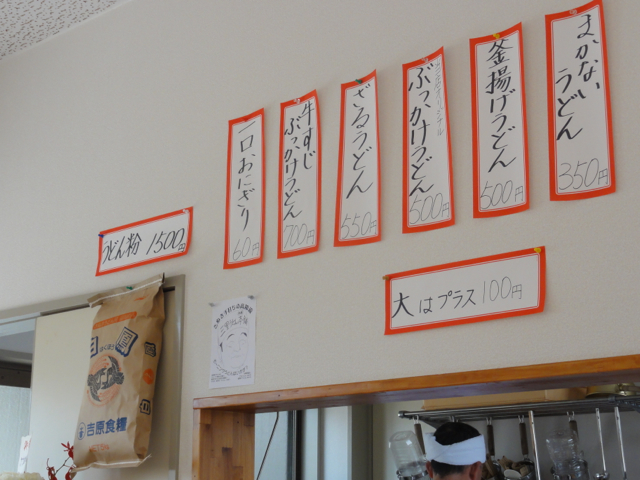 まかないうどん
350円
釜揚げうどん
500円
ぶっかけうどん
500円
ざるうどん
550円
牛すじ
ぶっかけうどん
700円
一口おにぎり
60円
うどん粉 1500円
大はプラス100円
吉原食糧